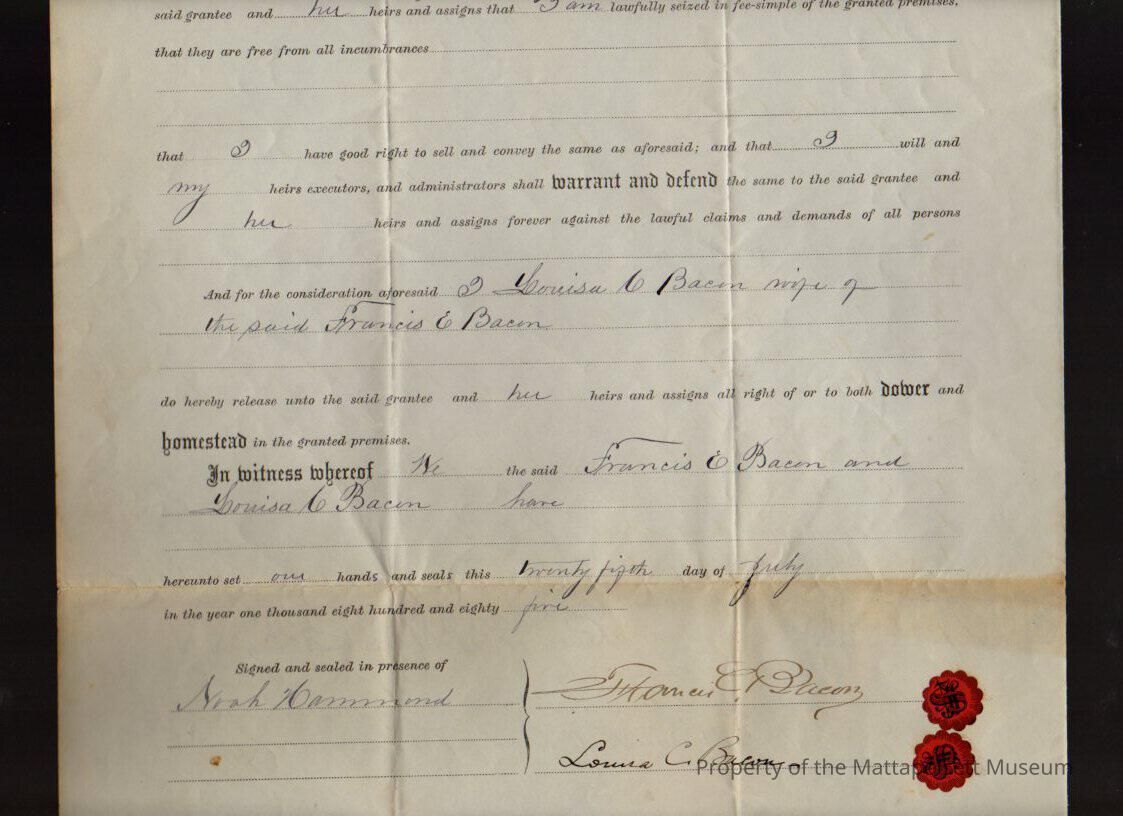 said grantee and her heirs and assigns that I am lawfully seized in fee-simple of the granted premises,
that they are free from all incumbrances
that I have good right to sell and convey the same as aforesaid; and that I will and
my heirs executors, and administrators shall warrant and defend the same to the said grantee and
her heirs and assigns forever against the lawful claims and demands of all persons
And for the consideration aforesaid I Louisa C Bacon wife of
the said Francis E Bacon
do hereby release unto the said grantee and her heirs and assigns all right of or to both dower and
homestead in the granted premises.
In witness whereof We the said Francis E Bacon and
Louisa C Bacon have
hereunto set our hands and seals this twenty fifth day of July
in the year one thousand eight hundred and eighty five
Signed and sealed in presence of
Noah Hammond
Francis E. Bacon
Louisa C. Bacon
Property of the Mattapoisett Museum